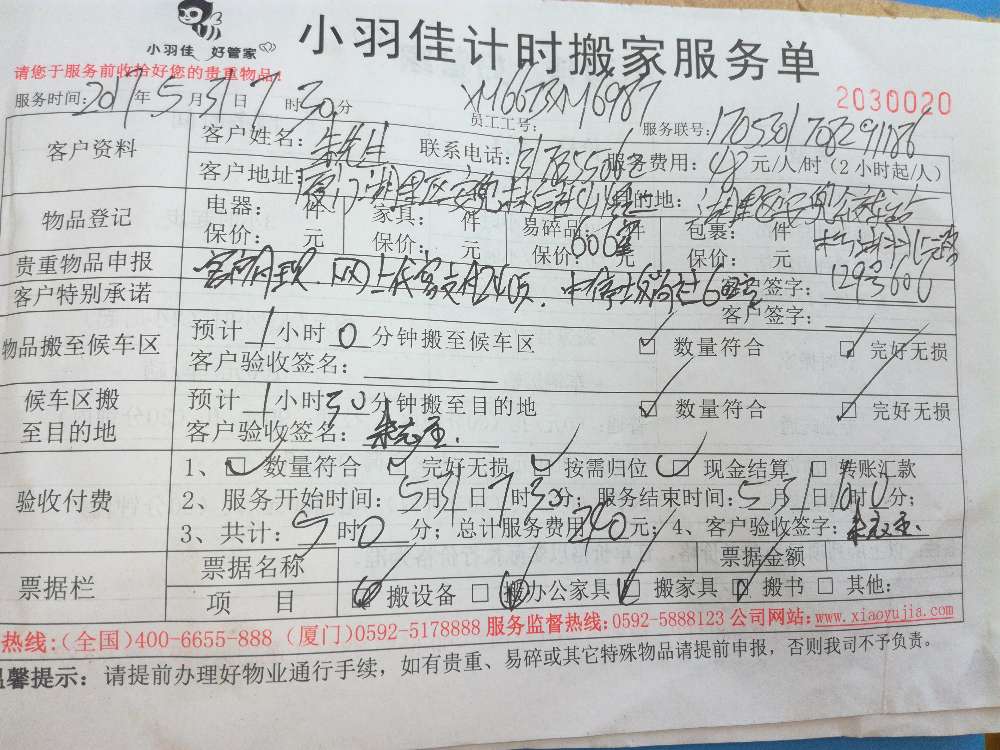 小羽佳 好管家
小羽佳计时搬家服务单
请您于服务前收拾好您的贵重物品!
2030020
服务时间: 2017年5月31日7时30分
员工工号: XM6623XM6987
服务联号:
客户资料
客户姓名: 朱先生 联系电话: 服务费用: 48元/人/时(2小时起/人)
客户地址: 目的地:
物品登记
电器: 件 家具: 件 易碎品: 件 包裹: 件
保价: 元 保价: 元 保价: 元 保价: 元
贵重物品申报 签字:
客户特别承诺 客户签字:
物品搬至候车区
预计1小时0分钟搬至候车区 数量符合 完好无损
客户验收签名:
候车区搬至目的地
预计1小时30分钟搬至目的地 数量符合 完好无损
客户验收签名:
验收付费
1、 数量符合 完好无损 按需归位 现金结算 转账汇款
2、服务开始时间: 5月31日7时30分; 服务结束时间: 5月31日10时0分;
3、共计: 5时0分; 总计服务费用240元; 4、客户验收签字:
票据栏
票据名称 票据金额
项 目 搬设备 搬办公家具 搬家具 搬书 其他:
热线:(全国)400-6655-888 (厦门)0592-5178888 服务监督热线:0592-5888123 公司网站:www.xiaoyujia.com
温馨提示: 请提前办理好物业通行手续, 如有贵重、易碎或其它特殊物品请提前申报, 否则我司不予负责。